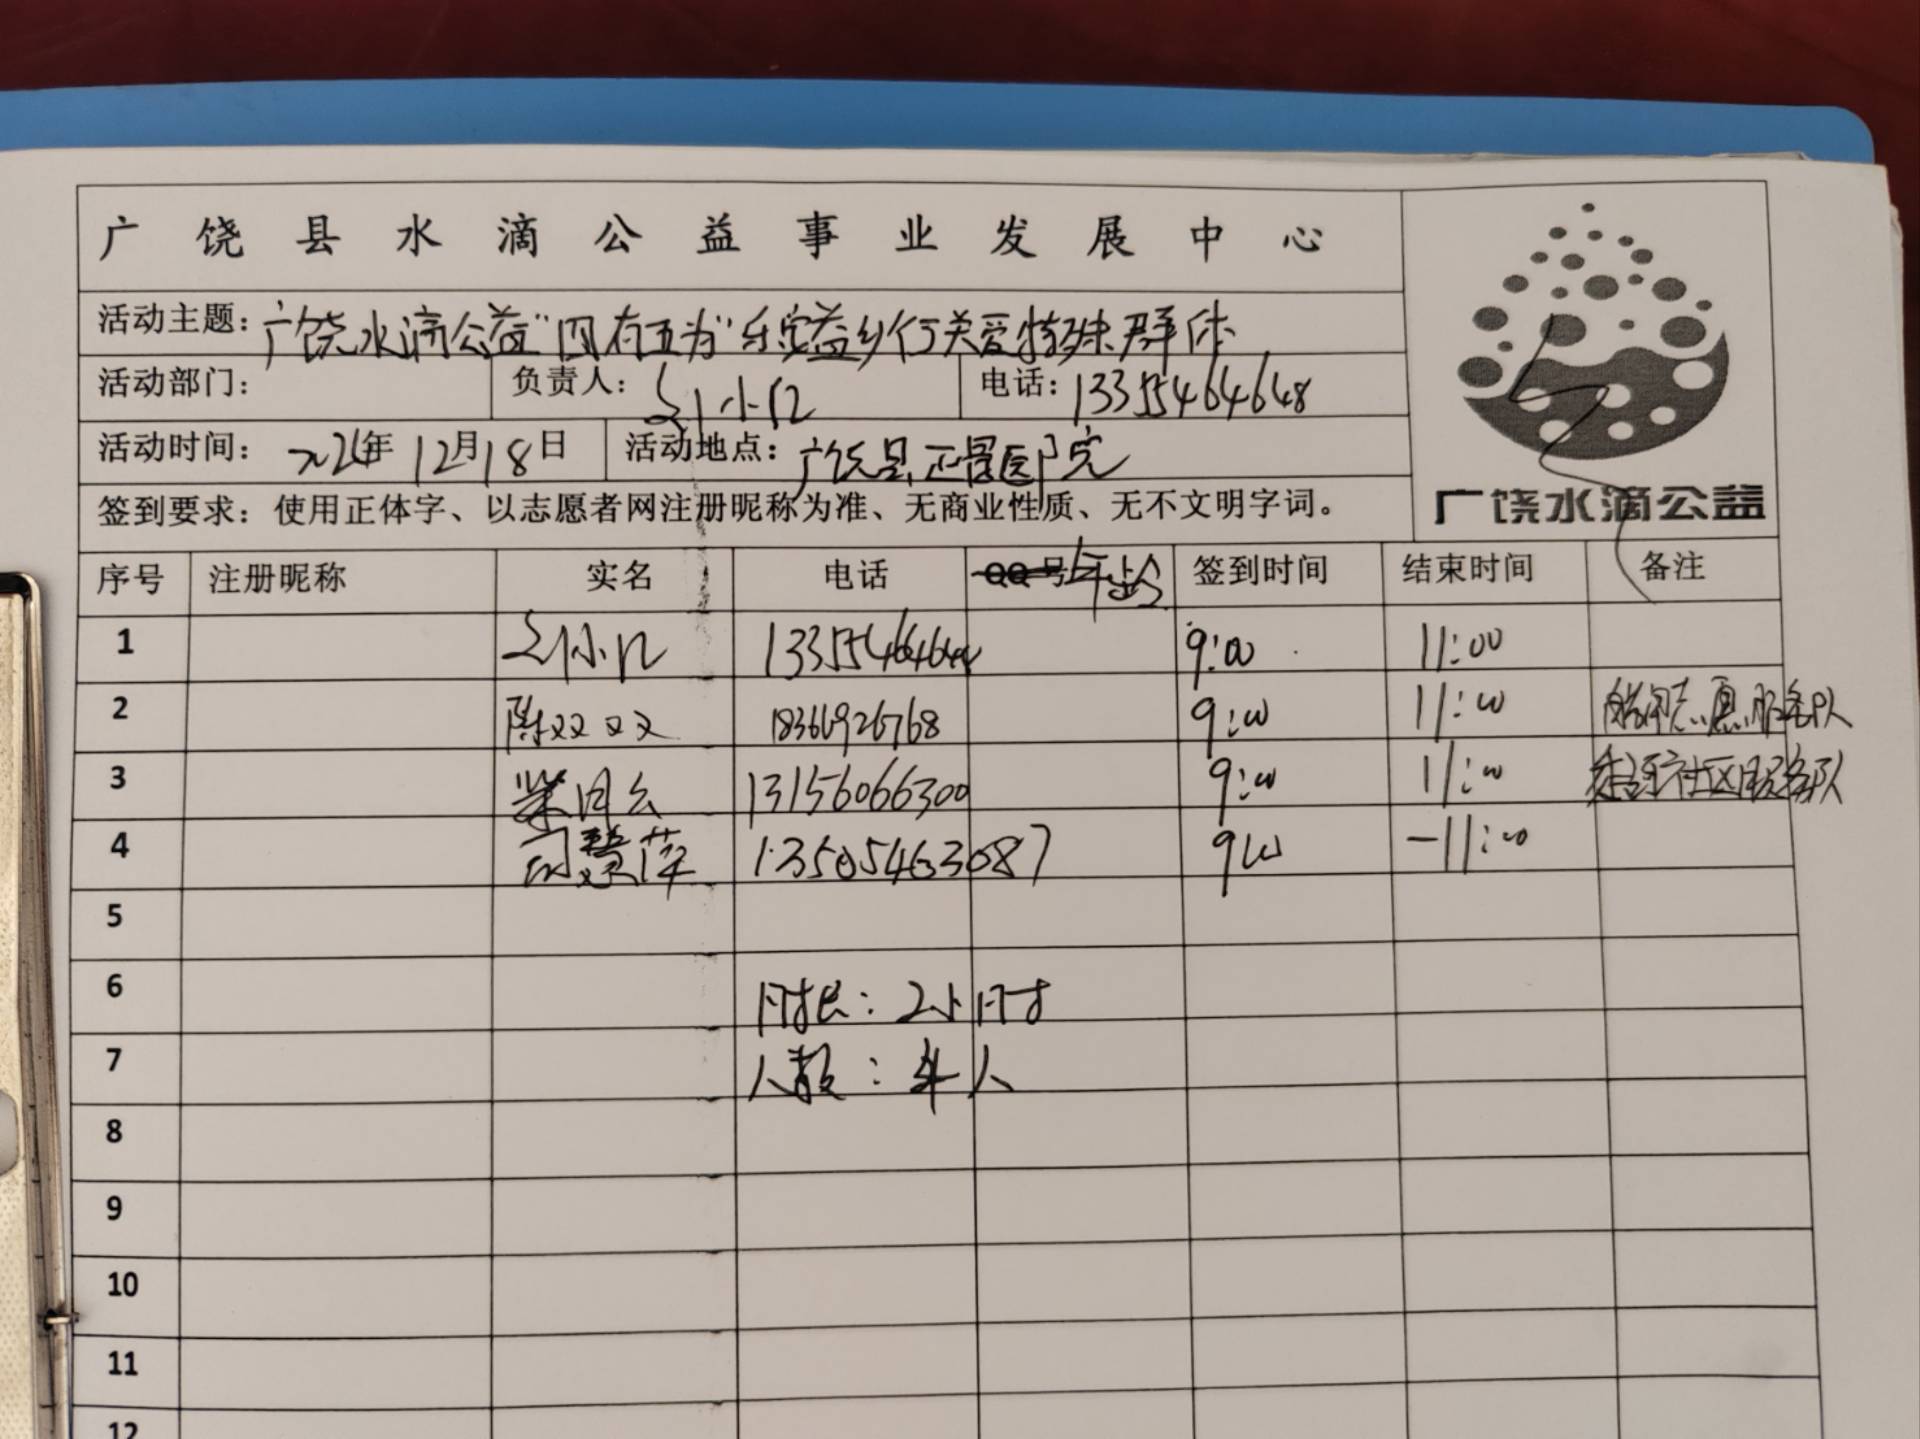 广饶县水滴公益事业发展中心
活动主题：广饶水滴公益"四有五为"乐安益乡行关爱特殊群体
活动部门： 负责人：刘小红 电话：13355464648
活动时间：2024年12月18日 活动地点：广饶县正骨医院
签到要求：使用正体字、以志愿者网注册昵称为准、无商业性质、无不文明字词。
广饶水滴公益
序号 注册昵称 实名 电话 年龄 签到时间 结束时间 备注
1 刘小红 13355464648 9:00 11:00
2 陈双双 18366926768 9:00 11:00 志愿服务队
3 13156066300 9:00 11:00 社区服务队
4 慧萍 13505463087 9:00 -11:00
5
6 时长：2小时
7 人数：4人
8
9
10
11
12